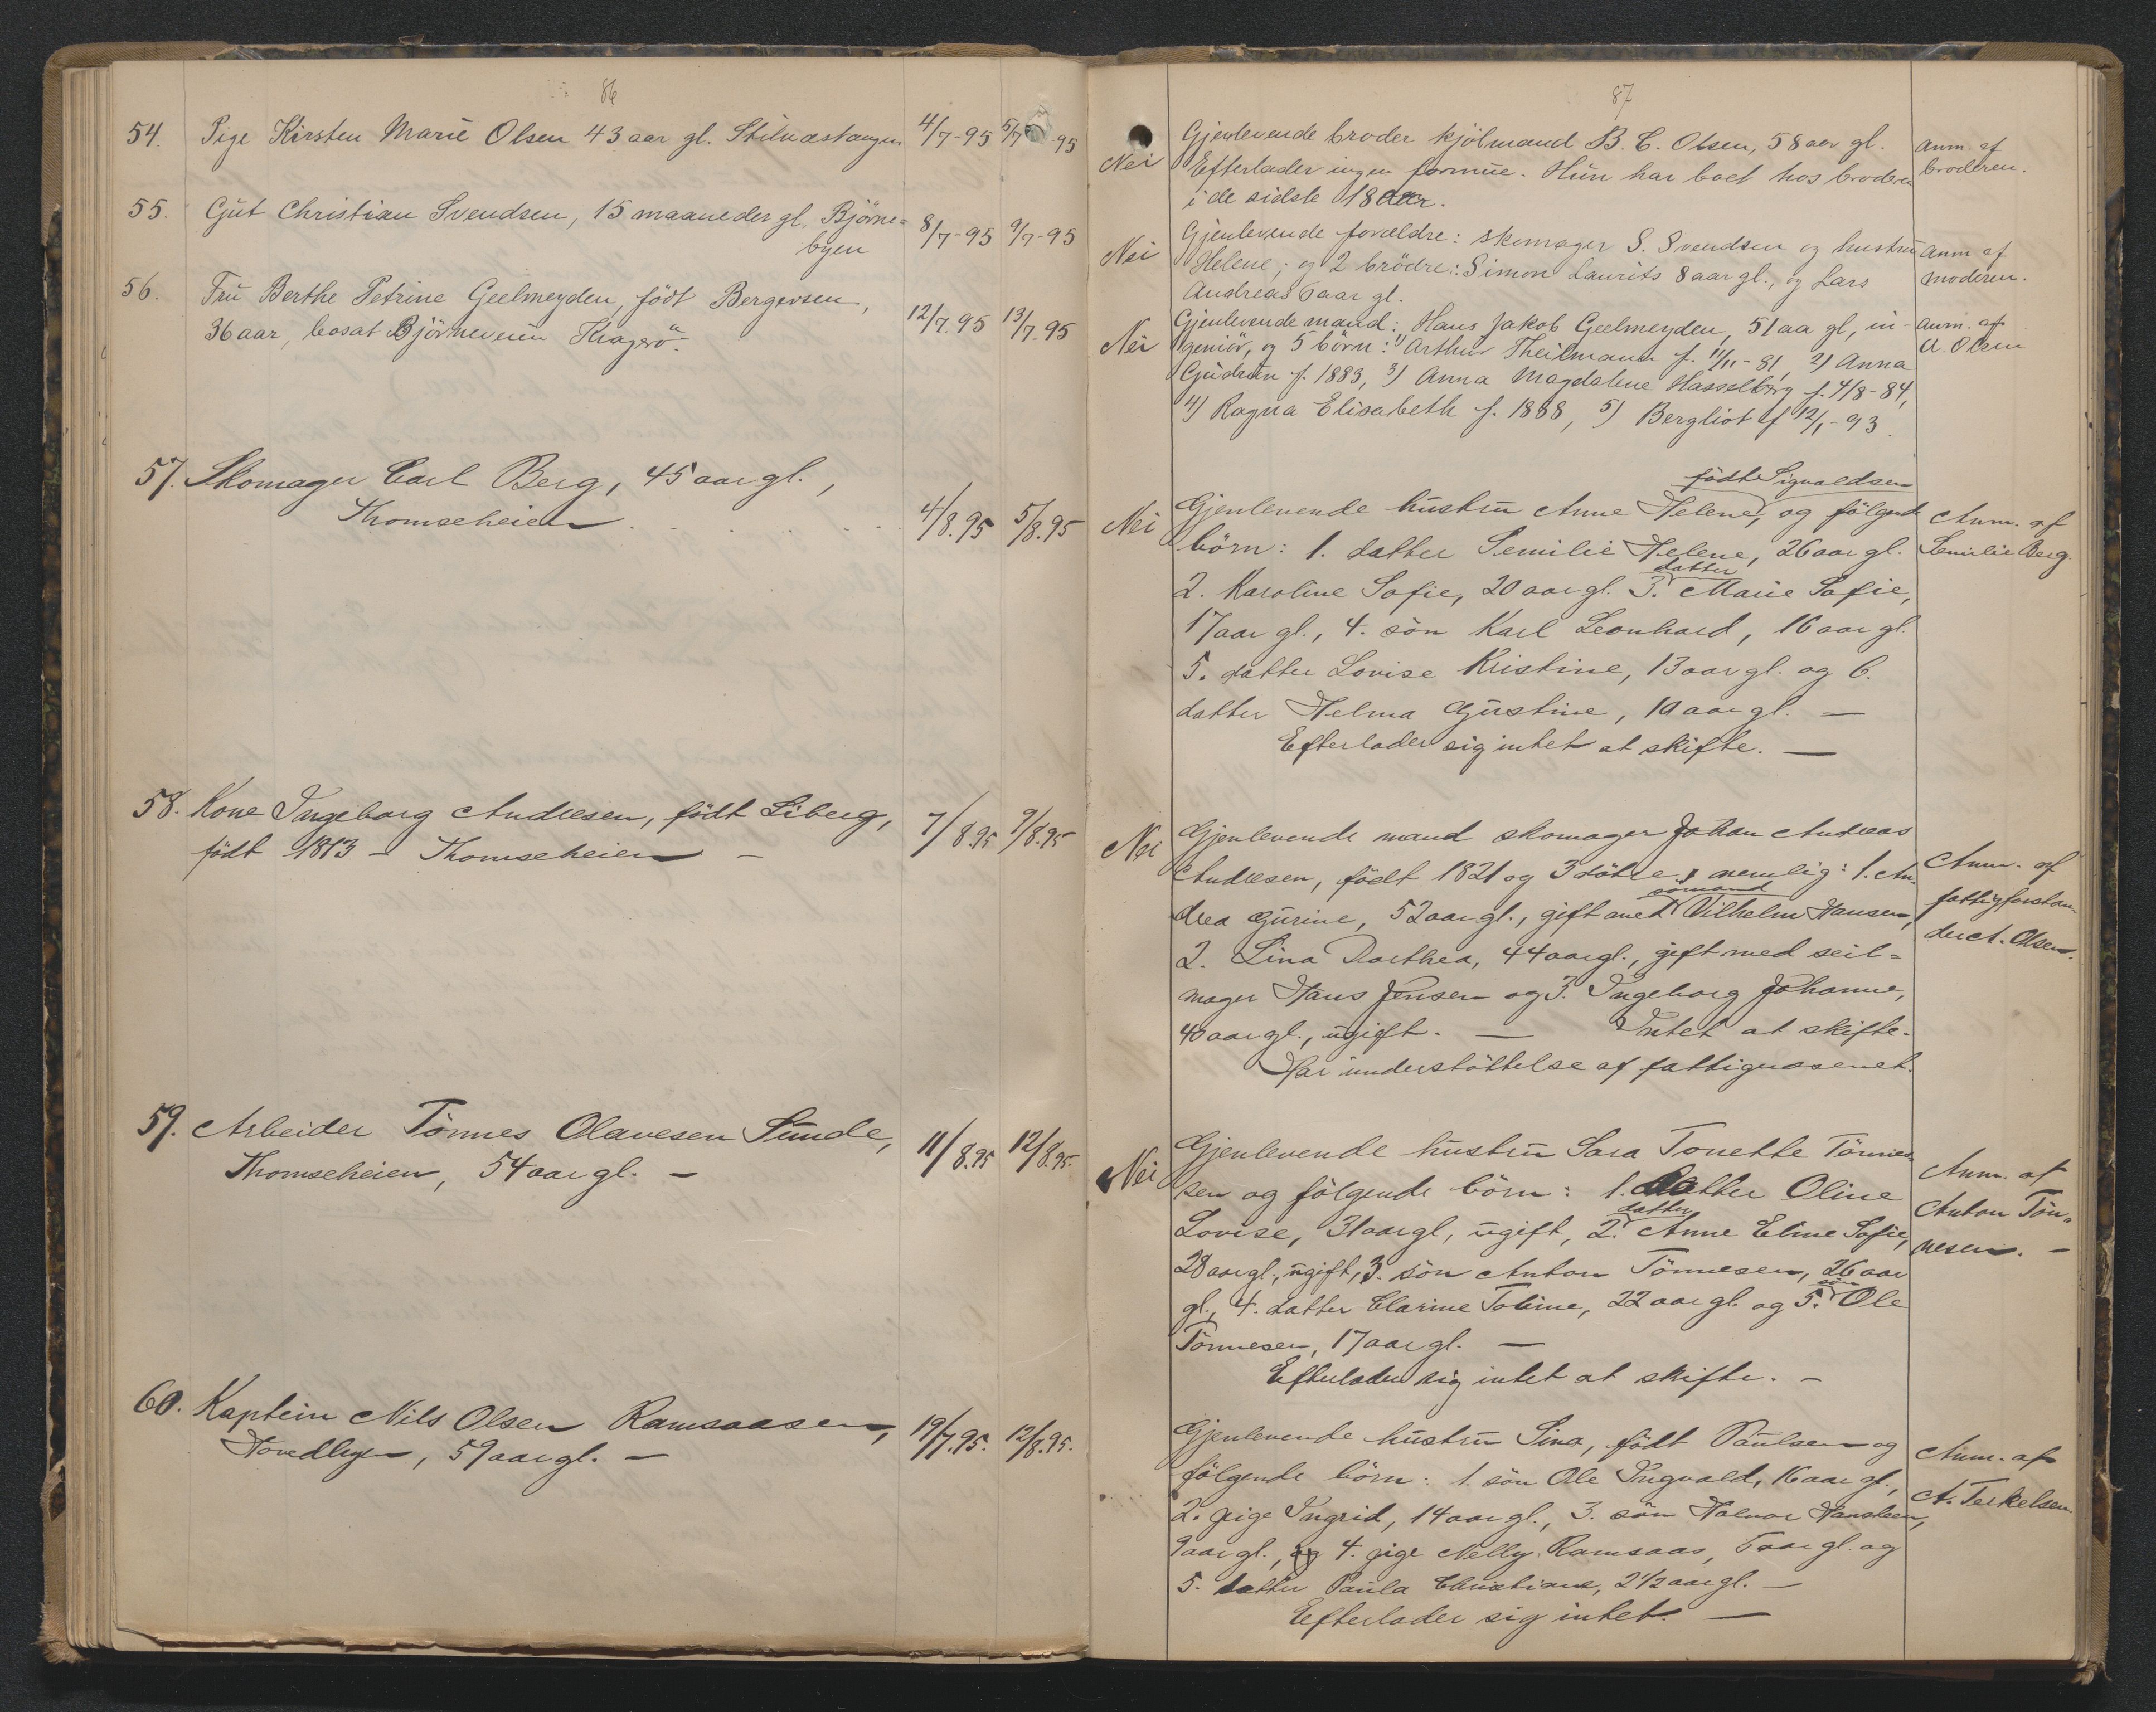 86
54. Pige Kirsten Marie Olsen 43 aar gl. Stilnæstangen 4/7-95 5/7-95
55. Gut Christian Svendsen, 15 maaneder gl. Björne=
byen 8/7-95 9/7-95
56. Fru Berthe Petrine Geelmeyden, födt Bergersen,
36 aar, bosat Björneveien Kragerö. 12/7.95 13/7.95
57. Skomager Carl Berg, 45 aar gl.,
Thomseheien 4/8.95 5/8.95
58. Kone Ingeborg Andresen, födt Liberg,
födt 1813 - Thomseheien - 7/8.95 9/8.95
59. Arbeider Tönnes Olavesen Sunde,
Thomseheien, 54 aar gl. - 11/8.95 12/8.95.
60. Kaptein Nils Olsen Ramsaasen,
59 aar gl. - 19/7.95. 12/8.95.
87
Gjenlevende broder kjölmand B. C. Olsen, 58 aar gl. anm. af
Nei Efterlader ingen formue. Hun har boet hos broderen broderen.
i de sidste 18 aar.
Gjenlevende forældre: skomager S. Svendsen og hustru anm af
Nei Helene; og 2 brödre: Simon Laurits 8 aar gl., og Lars moderen.
Andreas 5 aar gl.
Gjenlevende mand: Hans Jakob Geelmeyden, 51 aa gl, in- anm. af
Nei geniör, og 5 börn: 1) Arthur Theilmann f. 11/11-81, 2) Anna A. Olsen
Gudrun f. 1883, 3) Anna Magdalene Hasselberg f. 4/8-84,
4) Ragna Elisabeth f. 1888, 5) Bergliot f 12/1-93.
födt Sigvaldsen
Nei Gjenlevende hustru Anne Helene, og fölgende Anm. af
börn: 1. datter Semilie Helene, 26 aar gl. Semilie Berg.
datter
2. Karoline Sofie, 20 aar gl. 3. Marie Sofie,
17 aar gl., 4. sön Karl Leonhard, 16 aar gl.
5. datter Lovise Kristine, 13 aar gl. og 6.
datter Helma Gustine, 10 aar gl. —
Efterlader sig intet at skifte. —
Nei Gjenlevende mand skomager Johan Andreas
Andresen, födt 1821 og 3 dötre, nemlig: 1. An- Anm. af
sömand
drea Gurine, 52 aar gl., gift med Vilhelm Hansen, fattigforstan
2. Lina Dorthea, 44 aar gl., gift med seil= der A. Olsen.
mager Hans Jensen og 3. Ingeborg Johanne,
40 aar gl., ugift. — Intet at skifte.
Har understöttelse af fattigvæsenet.
Nei Gjenlevende hustru Sara Tonette Tönne-
sen og fölgende börn: 1. datter Oline Anm. af
datter
Lovise, 31 aar gl, ugift, 2. Anne Eline Sofie, Anton Tön=
28 aar gl., ugift, 3. sön Anton Tönnesen, 26 aar nesen. -
sön
gl., 4. datter Clarine Tobine, 22 aar gl. og 5. Ole
Tönnesen, 17 aar gl. —
Efterlader sig intet at skifte. -
Gjenlevende hustru Sina, födt Paulsen og Anm. af
fölgende börn: 1. sön Ole Ingvald, 16 aar gl., A. Terkelsen
2. pige Ingrid, 14 aar gl., 3. sön Halvor Hansteen,
9 aar gl., og 4. pige Nelly Ramsaas, 5 aar gl. og
5. datter Paula Christiane, 2 1/2 aar gl. —
Efterlader sig intet. —